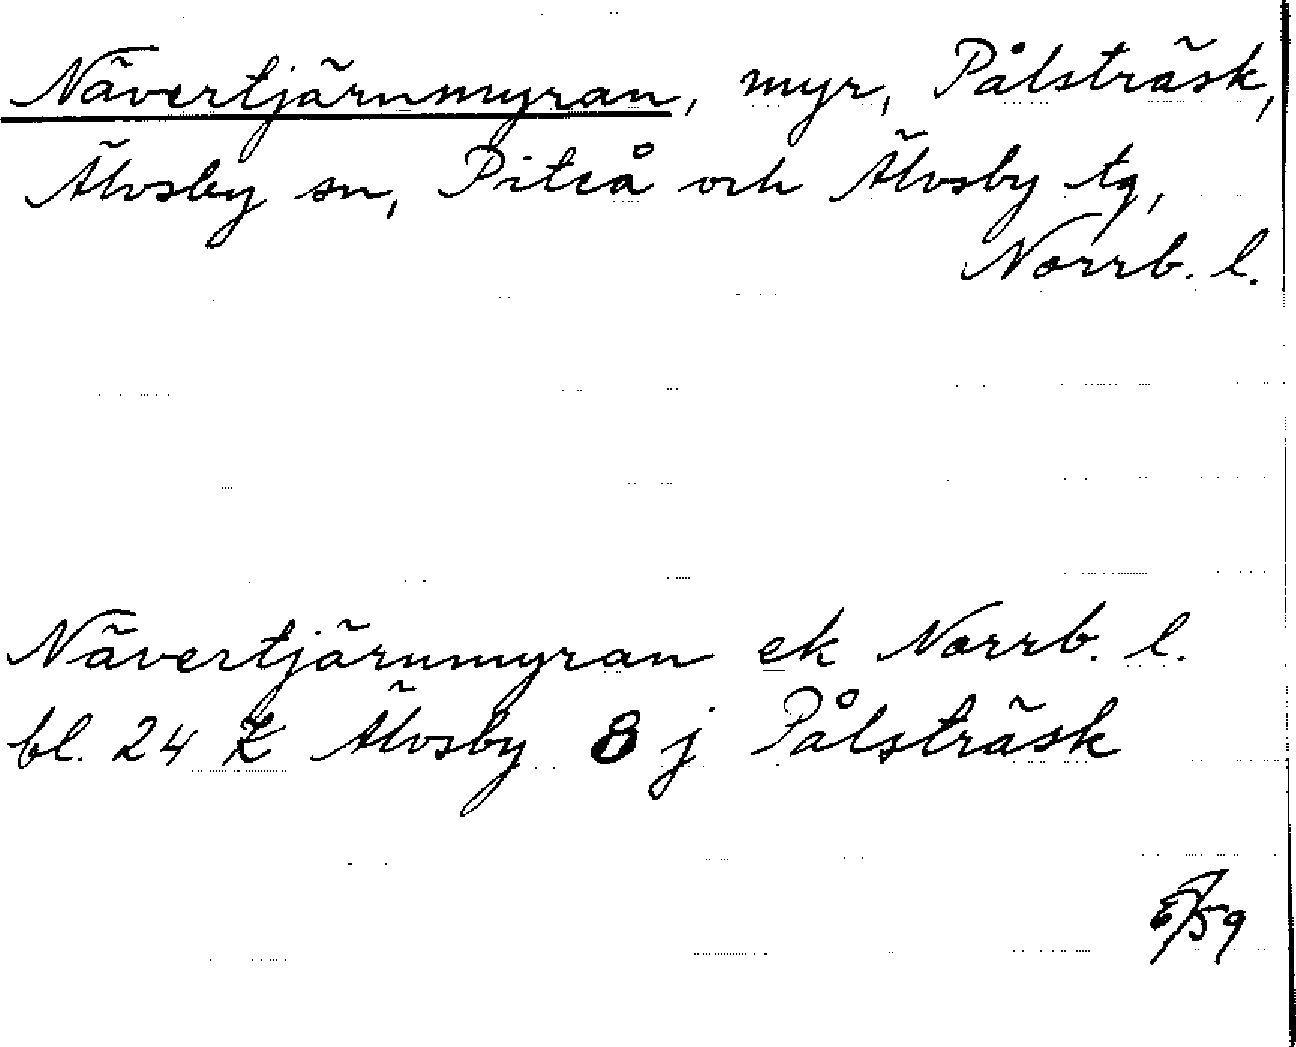 Nävertjärnmyran, myr, Pålsträsk,
Älvsby sn, Piteå och Älvsby tg,
Norrb. l.
Nävertjärnmyran ek Norrb. l.
bl. 24 Z Älvsby 8 j Pålsträsk
/59